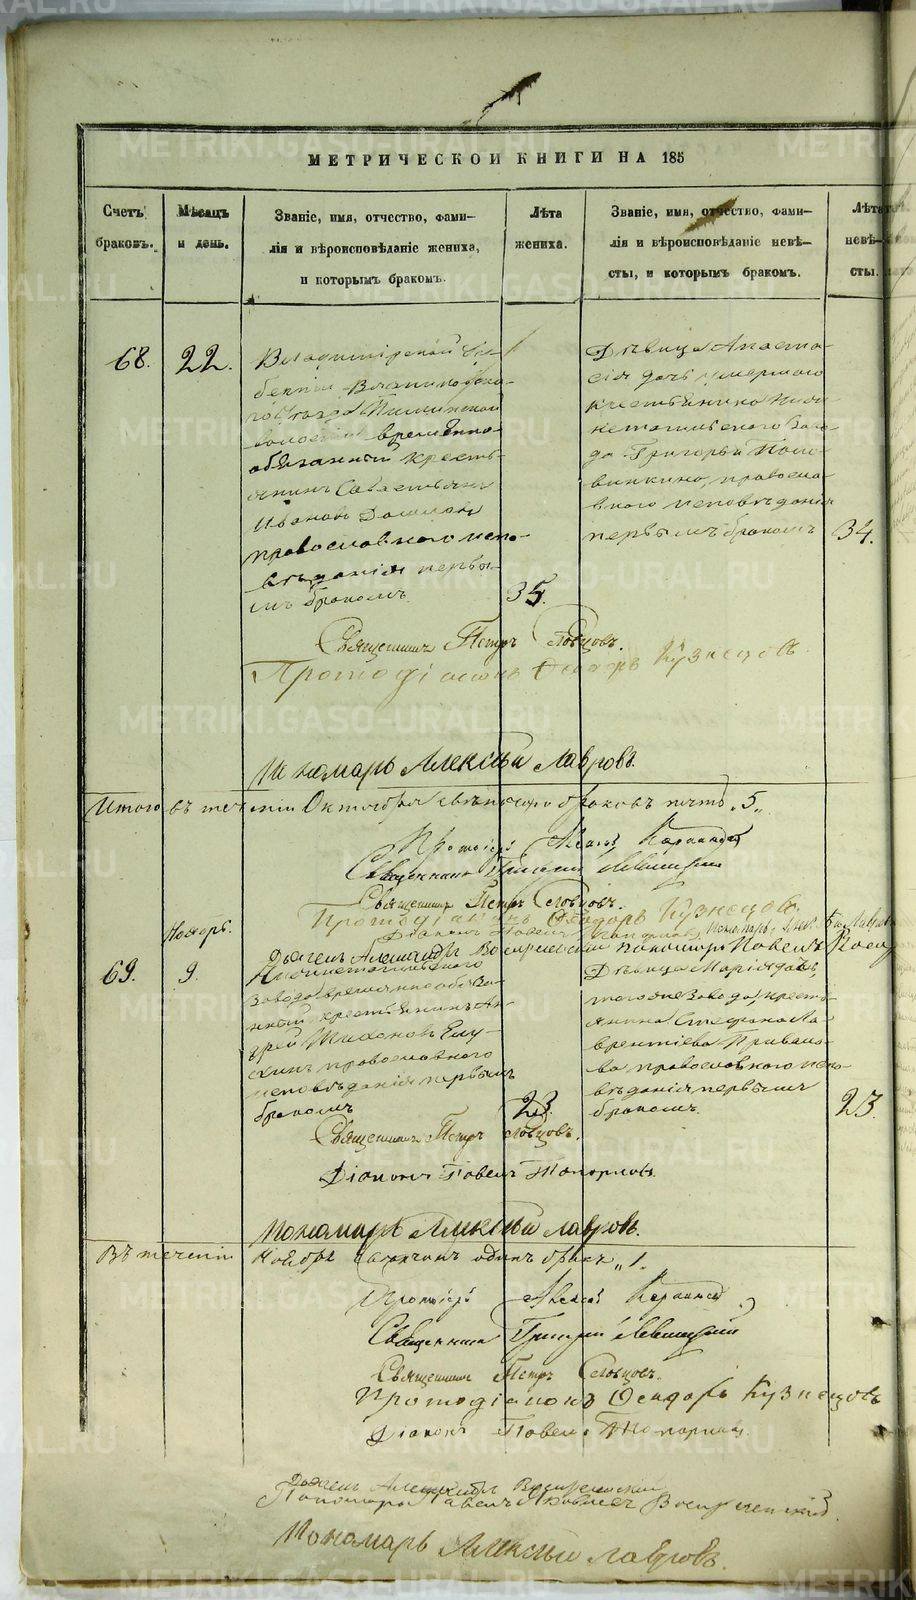 МЕТРИЧЕСКОЙ КНИГИ НА 185
Счетъ браковъ.
Мѣсяцъ и день.
Званіе, имя, отчество, фами-
лія и вѣроисповѣданіе жениха,
и которымъ бракомъ.
Лѣта жениха.
Званіе, имя, отчество, фами-
лія и вѣроисповѣданіе невѣ-
сты, и которымъ бракомъ.
Лѣта невѣ-
сты.
68. 22.
Владимірской Гу-
берніи
временно-
обязанный кресть-
янинъ Савастьянъ
Ивановъ
православнаго испо-
вѣданія первы-
мъ бракомъ
35.
Дѣвица Анаста-
сія дочь умершаго
крестьянина Ниж-
нетагильскаго Заво-
да Григорья Поло-
винкина, православ-
наго исповѣданія
первымъ бракомъ
34.
Священникъ Петръ Словцовъ.
Протодіаконъ Ѳеодоръ Кузнецовъ
Пономарь Алексѣй Лавровъ.
Итого въ теченіи Октября браковъ пять „5„
Протоіерей
Священникъ Григорій Левицкій
Священникъ Петръ Словцовъ.
Протодіаконъ Ѳеодоръ Кузнецовъ.
Діаконъ Павелъ
Александръ Воскресенскій пономарь Павелъ
Ноябрь.
69. 9.
Нижнетагильскаго
Завода временно обяза-
нный крестьянинъ Ан-
дрей Тихоновъ
православнаго
исповѣданія первымъ
бракомъ
23.
Дѣвица Марія дочь
того же Завода кресть-
янина Стефана Ла-
врентіева Привало-
ва православнаго испо-
вѣданія первымъ
бракомъ.
23.
Священникъ Петръ Словцовъ.
Діаконъ Павелъ Топорковъ
Пономарь Алексѣй Лавровъ.
Въ теченіи Ноября одинъ бракъ „1.
Протоіерей
Священникъ Григорій Левицкій
Священникъ Петръ Словцовъ.
Протодіаконъ Ѳеодоръ Кузнецовъ
Діаконъ Павелъ Топорковъ.
Александръ Воскресенскій
Пономарь Павелъ Воскресенскій
Пономарь Алексѣй Лавровъ.
METRIKI.GASO-URAL.RU